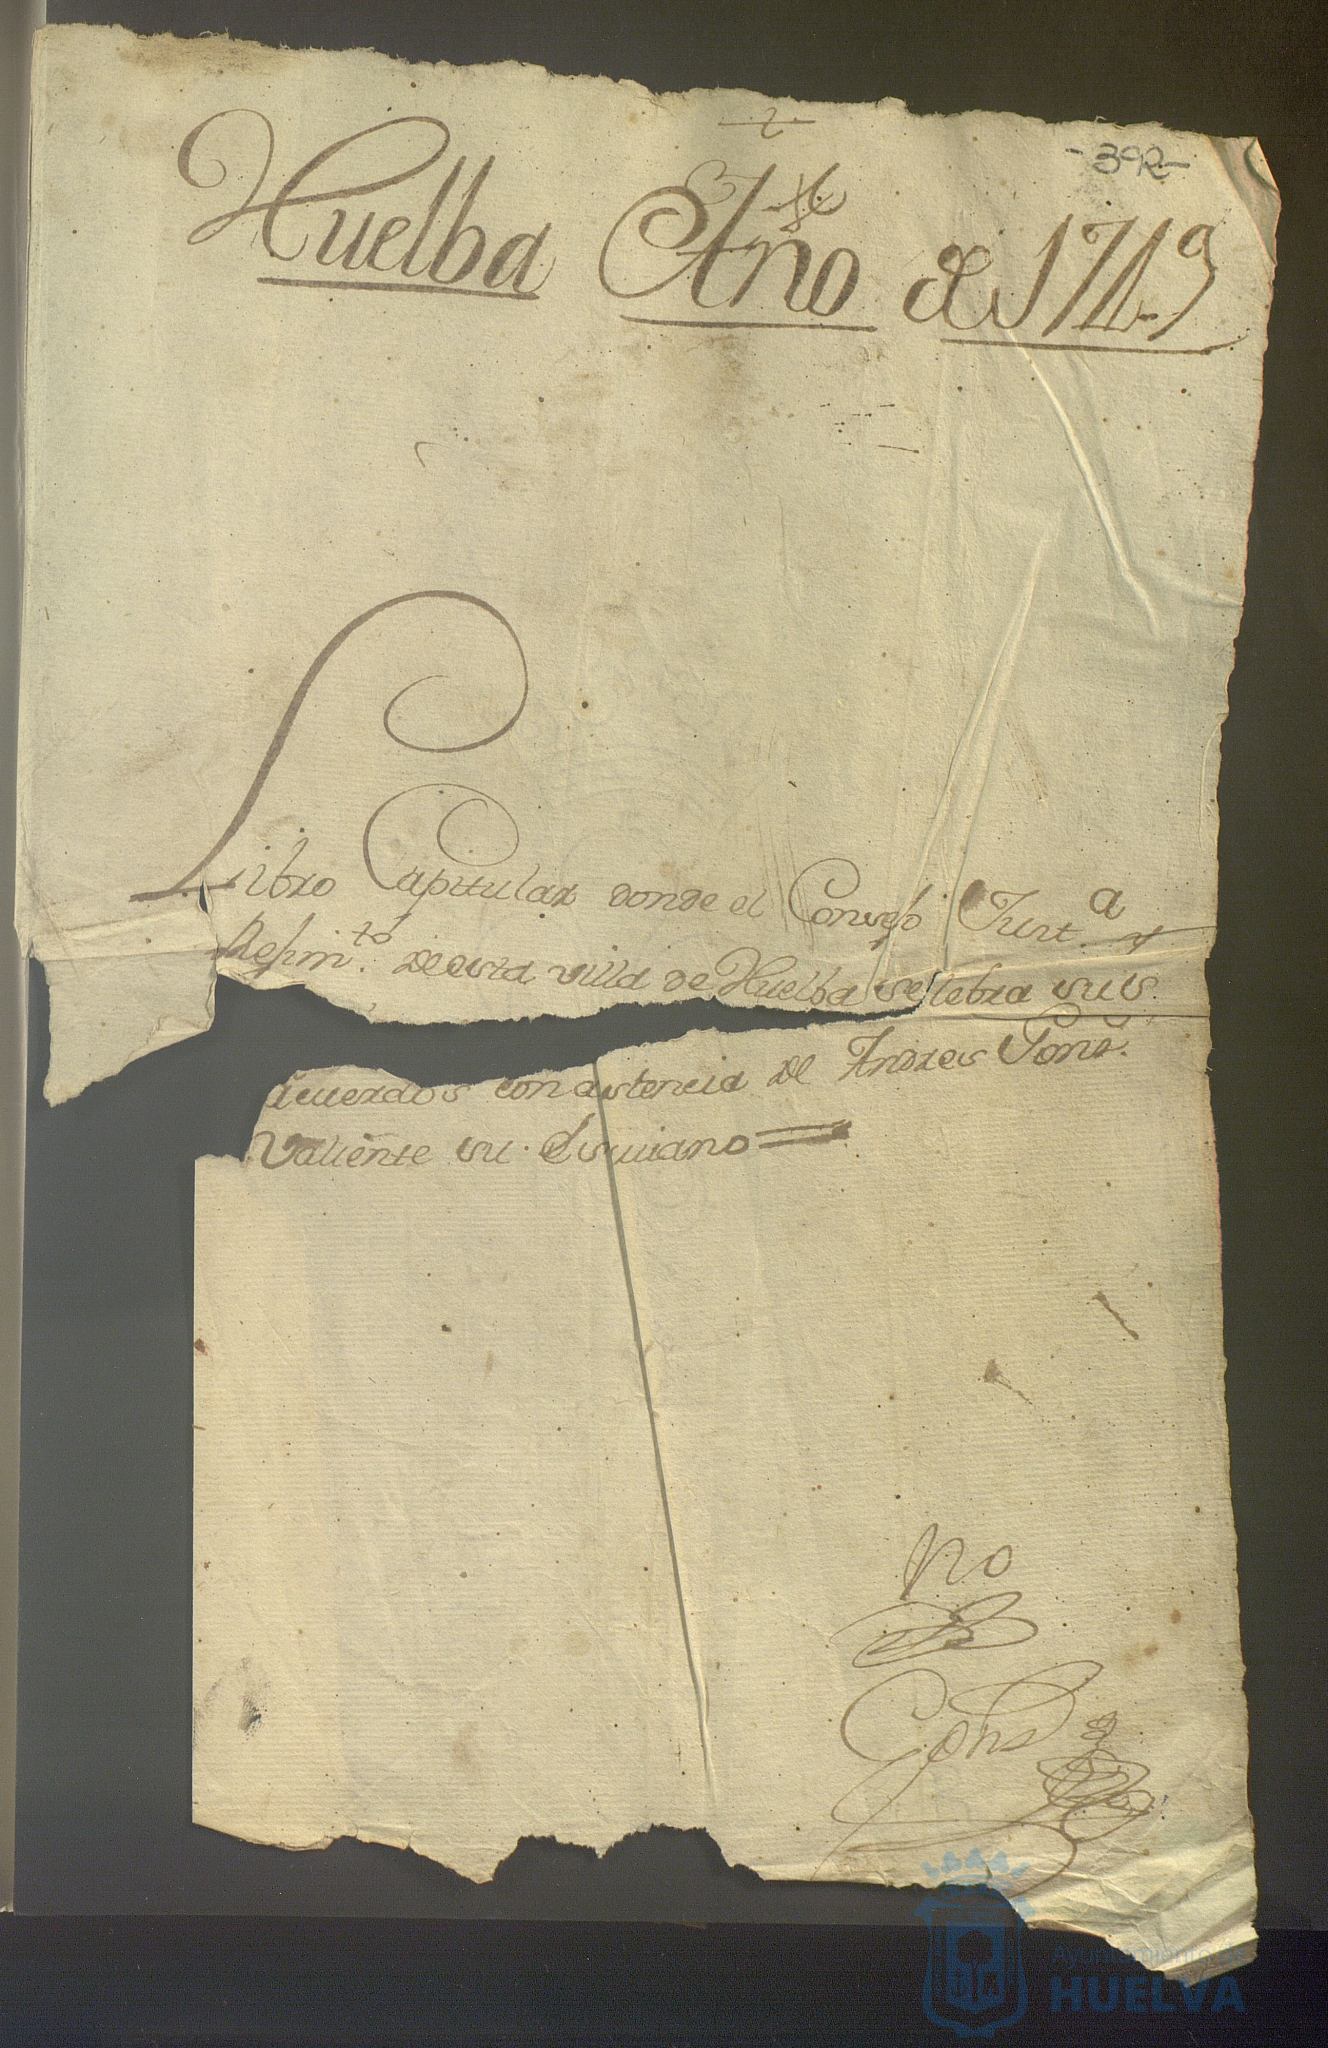 -392-
Huelba Año de 1749
Libro Capitular donde el Consejo Just.a y
Rejim.to de esta villa de Huelba selebra sus
acuerdos con astencia de Andres
Valiente su Escriuano =
Ayuntamiento de
HUELVA